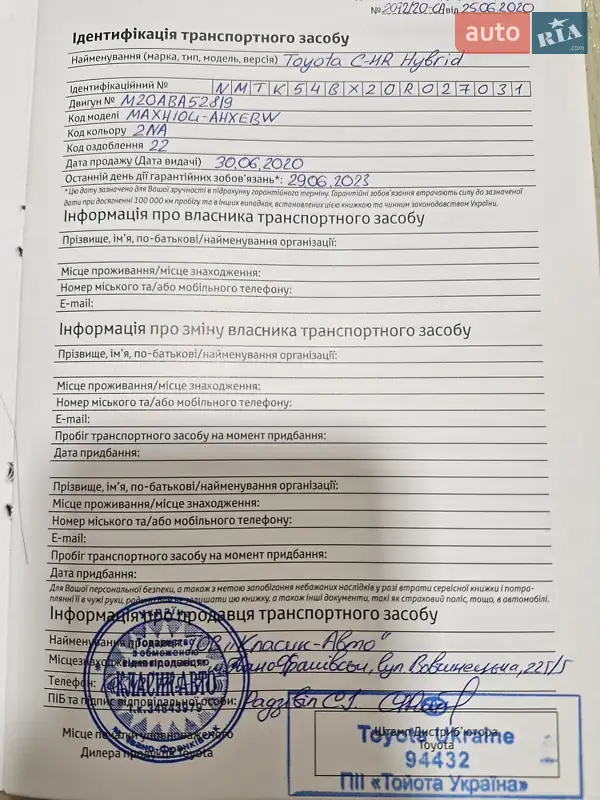 №2072/20-СА від 25.06.2020
auto RIA.com
Ідентифікація транспортного засобу
Найменування (марка, тип, модель, версія) Toyota C-HR Hybrid
Ідентифікаційний № NMTK54BX20R027031
Двигун № M20ABA52819
Код моделі MAXH10L-AHXEBW
Код кольору 2NA
Код оздоблення 22
Дата продажу (Дата видачі) 30.06.2020
Останній день дії гарантійних зобов'язань*: 29.06.2023
*Цю дату зазначено для Вашої зручності в підрахунку гарантійного терміну. Гарантійні зобов'язання втрачають силу до зазначеної
дати при досягненні 100 000 км пробігу та в інших випадках, встановлених цією книжкою та чинним законодавством України.
Інформація про власника транспортного засобу
Прізвище, ім'я, по-батькові/найменування організації:
Місце проживання/місце знаходження:
Номер міського та/або мобільного телефону:
E-mail:
Інформація про зміну власника транспортного засобу
Прізвище, ім'я, по-батькові/найменування організації:
Місце проживання/місце знаходження:
Номер міського та/або мобільного телефону:
E-mail:
Пробіг транспортного засобу на момент придбання:
Дата придбання:
Прізвище, ім'я, по-батькові/найменування організації:
Місце проживання/місце знаходження:
Номер міського та/або мобільного телефону:
E-mail:
Пробіг транспортного засобу на момент придбання:
Дата придбання:
Для Вашої персональної безпеки, а також з метою запобігання небажаних наслідків у разі втрати сервісної книжки і потра-
плянні її в чужі руки, радимо не залишати цю книжку, а також інші документи, такі як страховий поліс, тощо, в автомобілі.
Інформація про продавця транспортного засобу
Найменування продавця: ТОВ "Класик-Авто"
Місцезнаходження Івано-Франківськ, вул Вовчинецька, 225/5
Телефон:
ПІБ та підпис відповідальної особи: Радзвіл С.І.
Місце печатки уповноваженого
Дилера продукції Toyota
Товариство
з обмеженою
відповідальністю
"КЛАСИК АВТО"
і.к. 34843975
Івано-Франківськ
Штамп Дистриб'ютора
Toyota
Toyota Ukraine
94432
ПІІ «Тойота Україна»